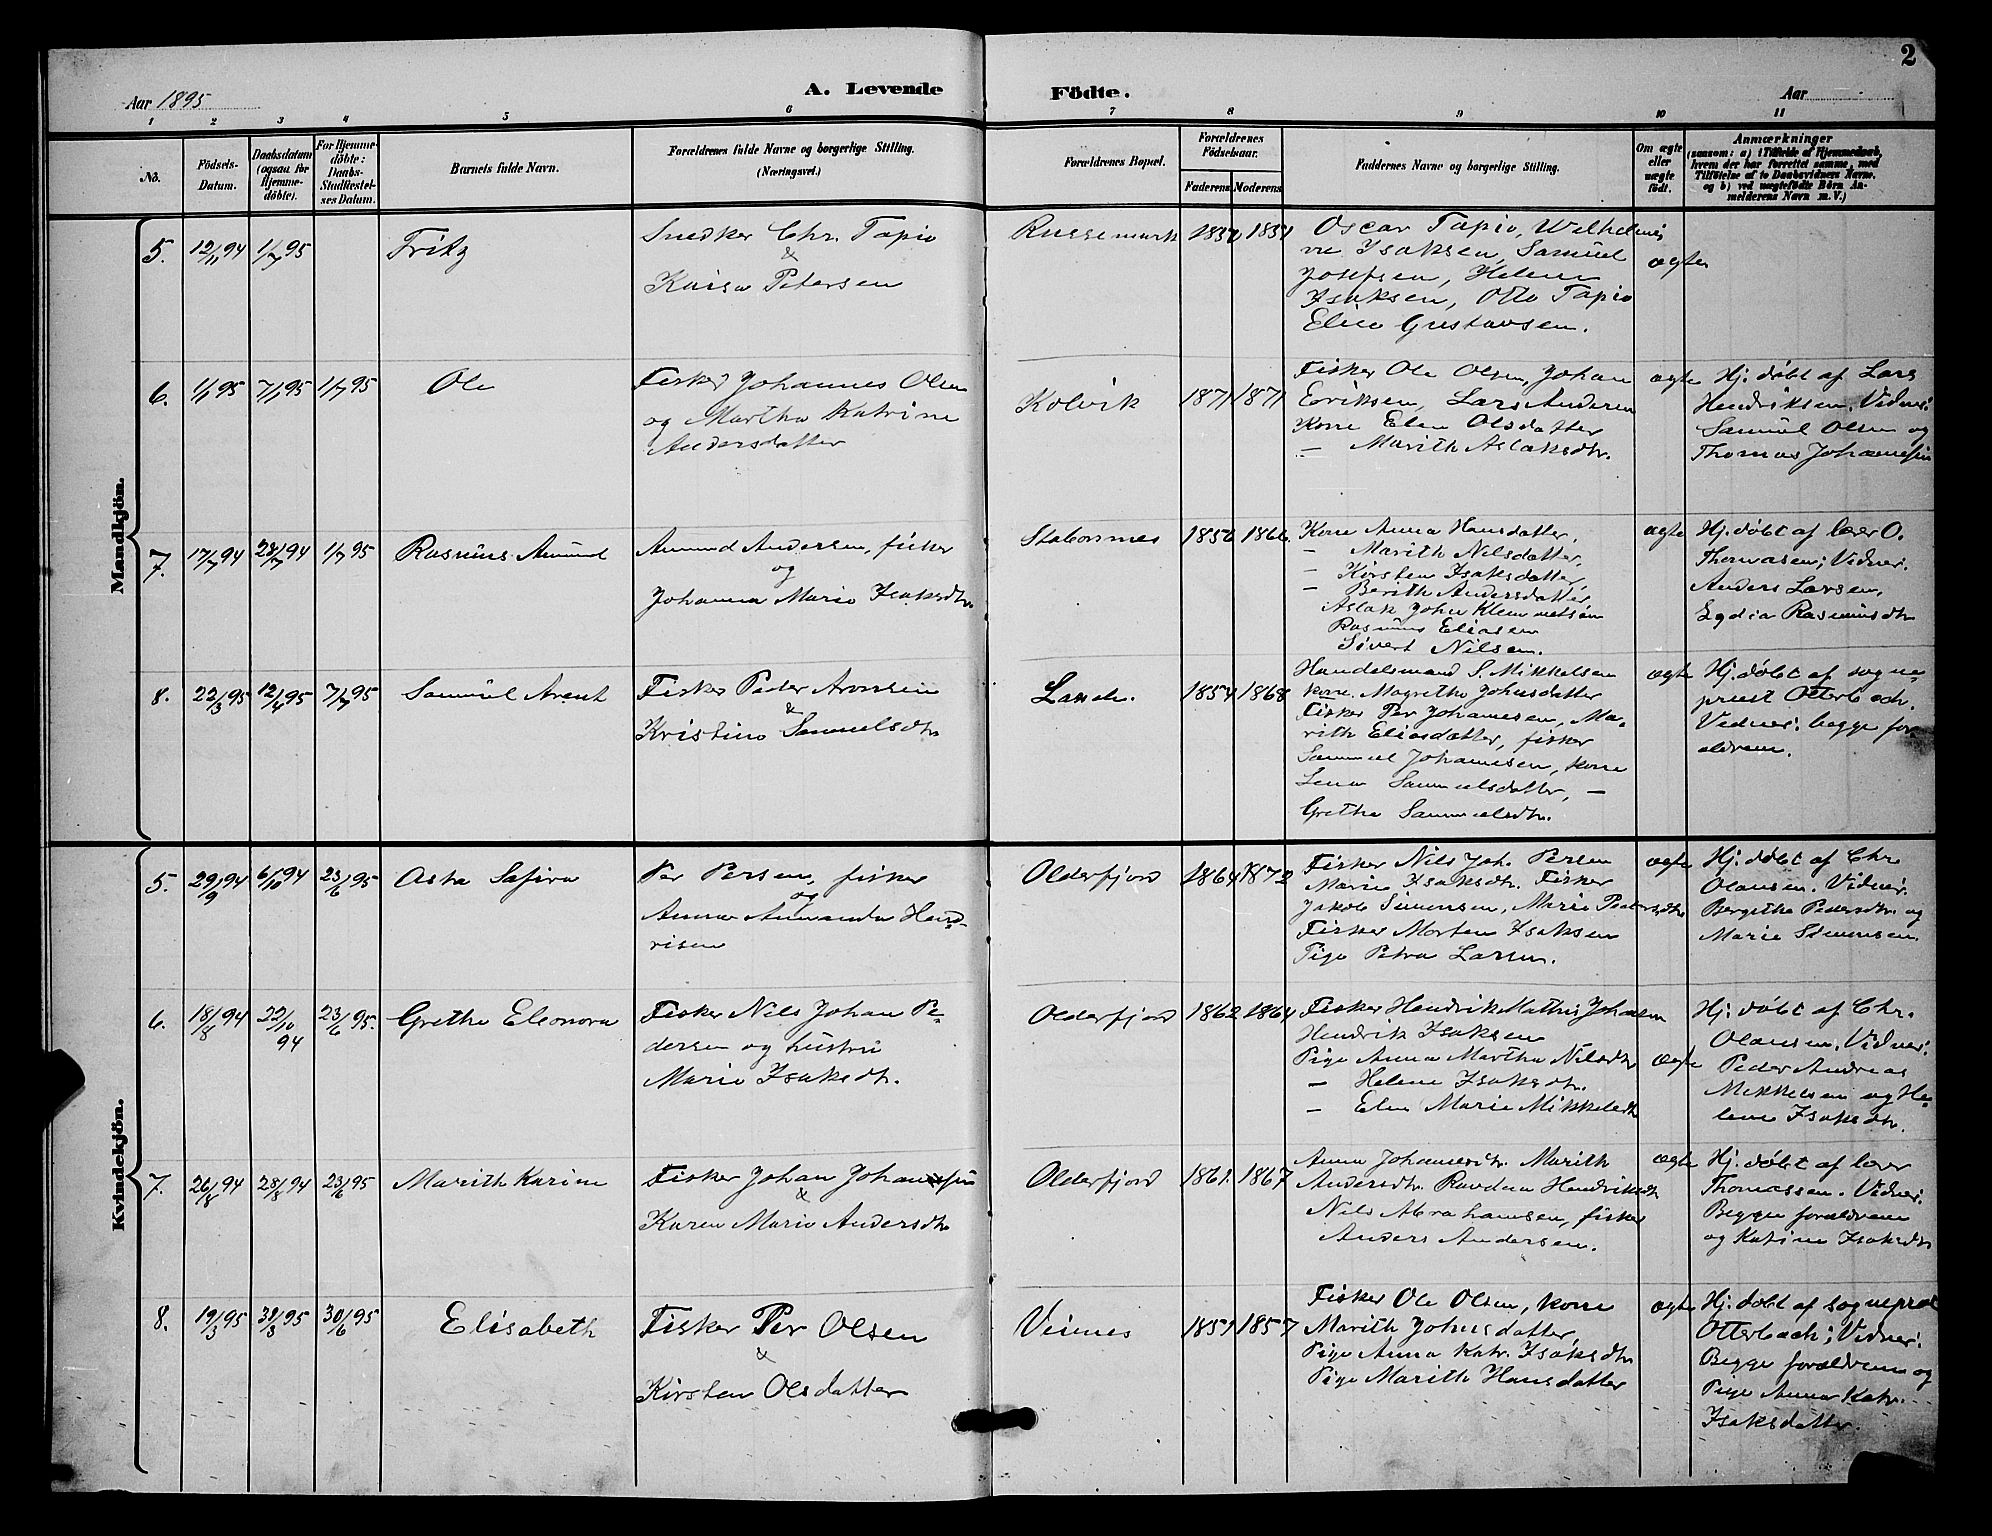 2
Aar 1895
A. Levende
Födte.
Aar
1 2 3 4 5 6 7 8 9 10 11
No.
Födsels-
Datum.
Daabsdatum
(ogsaa for
Hjemme-
döbte).
For Hjemme-
döbte:
Daabs-
Stadfæstel-
ses Datum.
Barnets fulde Navn.
Forældrenes fulde Navne og borgerlige Stilling.
(Næringsvei.)
Forældrenes Bopæl.
Forældrenes
Födselsaar.
Faderens
Moderens
Faddernes Navne og borgerlige Stilling.
Om ægte
eller
uægte
födt.
Anmærkninger
(saasom: a) i Tilfælde af Hjemmedaab,
hvem der har forrettet samme, med
Tilföielse af to Daabsvidners Navne.
og b) ved uægtefödte Börn An-
melderens Navn m. V.)
Mandkjön.
5.
12/11 94
1/7 95
Fritz
Snedker Chr. Tapio
&
Kaisa Petersen
Russemark
Oscar Tapio, Wilhelmi
ne Isaksen, Samuel
Josefsen, Helene
Isaksen, Otto Tapio
Elise Gustavsen.
ægte
6.
1/1 95
7/1 95
1/7 95
Ole
Fisker Johannes Olsen
og Martha Katrine
Andersdatter
Kolvik
1871
1871
Fisker Ole Olsen, Johan
Eriksen, Lars Andersen
Kone Elen Olsdatter
— Marith Aslaksdtr.
ægte
Hj. døbt af Lars
Hendriksen. Vidner:
Samuel Olsen og
Thomas Johannesen
7.
17/7 94
28/7 94
1/7 95
Rasmus Amund
Amund Andersen, fisker
og
Johanna Marie Isaksdtr.
Stabursnes
1850
1866.
Kone Anna Hansdatter.
— Marith Nilsdatter,
— Kirsten Isaksdatter,
— Berith Andersdatter
Aslak John Klemmetsen
Rasmus Eliasen
Sivert Nilsen.
ægte
Hj. døbt af lærer O.
Thomasen; Vidner.
Anders Larsen,
Lydia Rasmusdtr
8.
22/3 95
12/4 95
7/7 95
Samuel Arent
Fisker Peder Aronsen
&
Kristine Samuelsdtr
1854
1868
Handelsmand S. Mikkelsen
kone Magrethe Johnsdatter
Fisker Per Johannesen, Ma-
rith Eliasdatter, fisker
Samuel Johannesen, kone
Lena Samuelsdatter, —
Grethe Samuelsdtr.
ægte
Hj. døbt af sogne-
præst Otterbech.
Vidner: begge for-
ældrene.
Kvindekjön.
5.
29/9 94
6/10 94
23/6 95
Asta Safira
Per Persen, fisker
og
Anna Amanda Hend-
risen
Olderfjord
1864
1872
Fisker Nils Joh. Persen
Marie Isaksdtr. Fisker
Jakob Simonsen, Marie Pedersdtr
Fisker Morten Isaksen
Pige Petra Larsen.
ægte
Hj. døbt af Chr.
Olausen. Vidner.
Bergitha Pedersdtr. og
Marie Simonsen.
6.
18/8 94
22/10 94
23/6 95.
Grethe Eleonora
Fisker Nils Johan Pe-
dersen og hustru
Marie Isaksdtr.
Olderfjord
1862
1864
Fisker Hendrik Mathis Johansen
Hendrik Isaksen
Pige Anna Martha Nilsdtr
— Helene Isaksdtr.
— Elen Marie Mikkelsdtr
ægte
Hj. døbt af Chr.
Olausen. Vidner:
Peder Andreas
Mikkelsen og He-
lene Isaksdtr.
7.
26/8 94
28/8 94
23/6 95
Marith Karine
Fisker Johan Johannesen
&
Karen Marie Andersdtr
Olderfjord
1861.
1867
Anna Johannesdtr. Marith
Andersdtr. Ravdna Hendriksdtr
Nils Abrahamsen, fisker
Anders Andersen.
ægte
Hj. døbt af lærer
Thomassen. Vidner:
Begge forældrene
og Katrine Isaksdtr
8.
19/3 95
31/3 95
30/6 95
Elisabeth
Fisker Per Olsen
&
Kirsten Olsdatter
Veines
1851
1857
Fisker Ole Olsen, kone
Marith Johnsdatter,
Pige Anna Katr. Isaksdtr
Pige Marith Hansdatter
ægte
Hj. døbt af sognepræst
Otterbech; Vidner:
Begge forældrene og
Pige Anna Katr.
Isaksdatter.